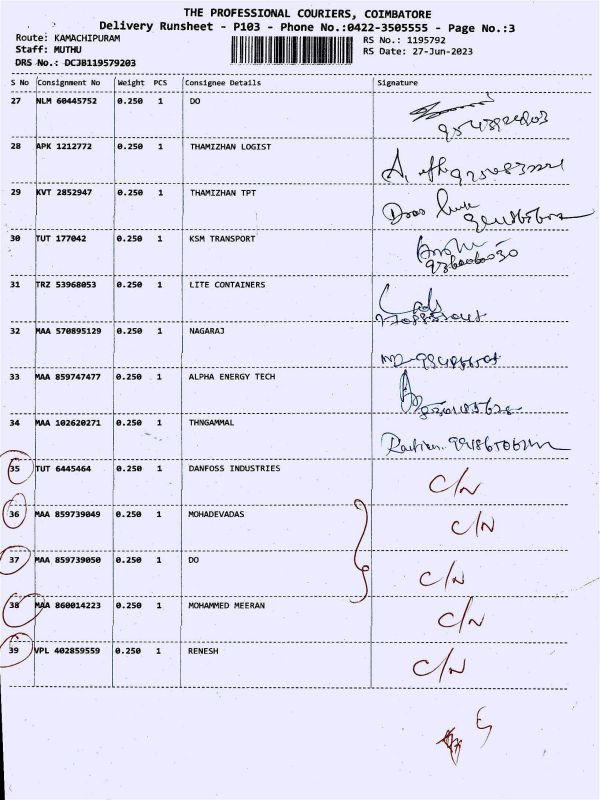 THE PROFESSIONAL COURIERS, COIMBATORE
Delivery Runsheet - P103 - Phone No.:0422-3505555 - Page No.:3
Route: KAMACHIPURAM RS No.: 1195792
Staff: MUTHU RS Date: 27-Jun-2023
DRS No.: DCJB119579203
S No Consignment No Weight PCS Consignee Details Signature
27 NLM 60445752 0.250 1 DO
28 APK 1212772 0.250 1 THAMIZHAN LOGIST
29 KVT 2852947 0.250 1 THAMIZHAN TPT
30 TUT 177042 0.250 1 KSM TRANSPORT
31 TRZ 53968053 0.250 1 LITE CONTAINERS
32 MAA 570895129 0.250 1 NAGARAJ
33 MAA 859747477 0.250 1 ALPHA ENERGY TECH
34 MAA 102620271 0.250 1 THNGAMMAL
35 TUT 6445464 0.250 1 DANFOSS INDUSTRIES C/N
36 MAA 859739049 0.250 1 MOHADEVADAS C/N
37 MAA 859739050 0.250 1 DO C/N
38 MAA 860014223 0.250 1 MOHAMMED MEERAN C/N
39 VPL 402859559 0.250 1 RENESH C/N